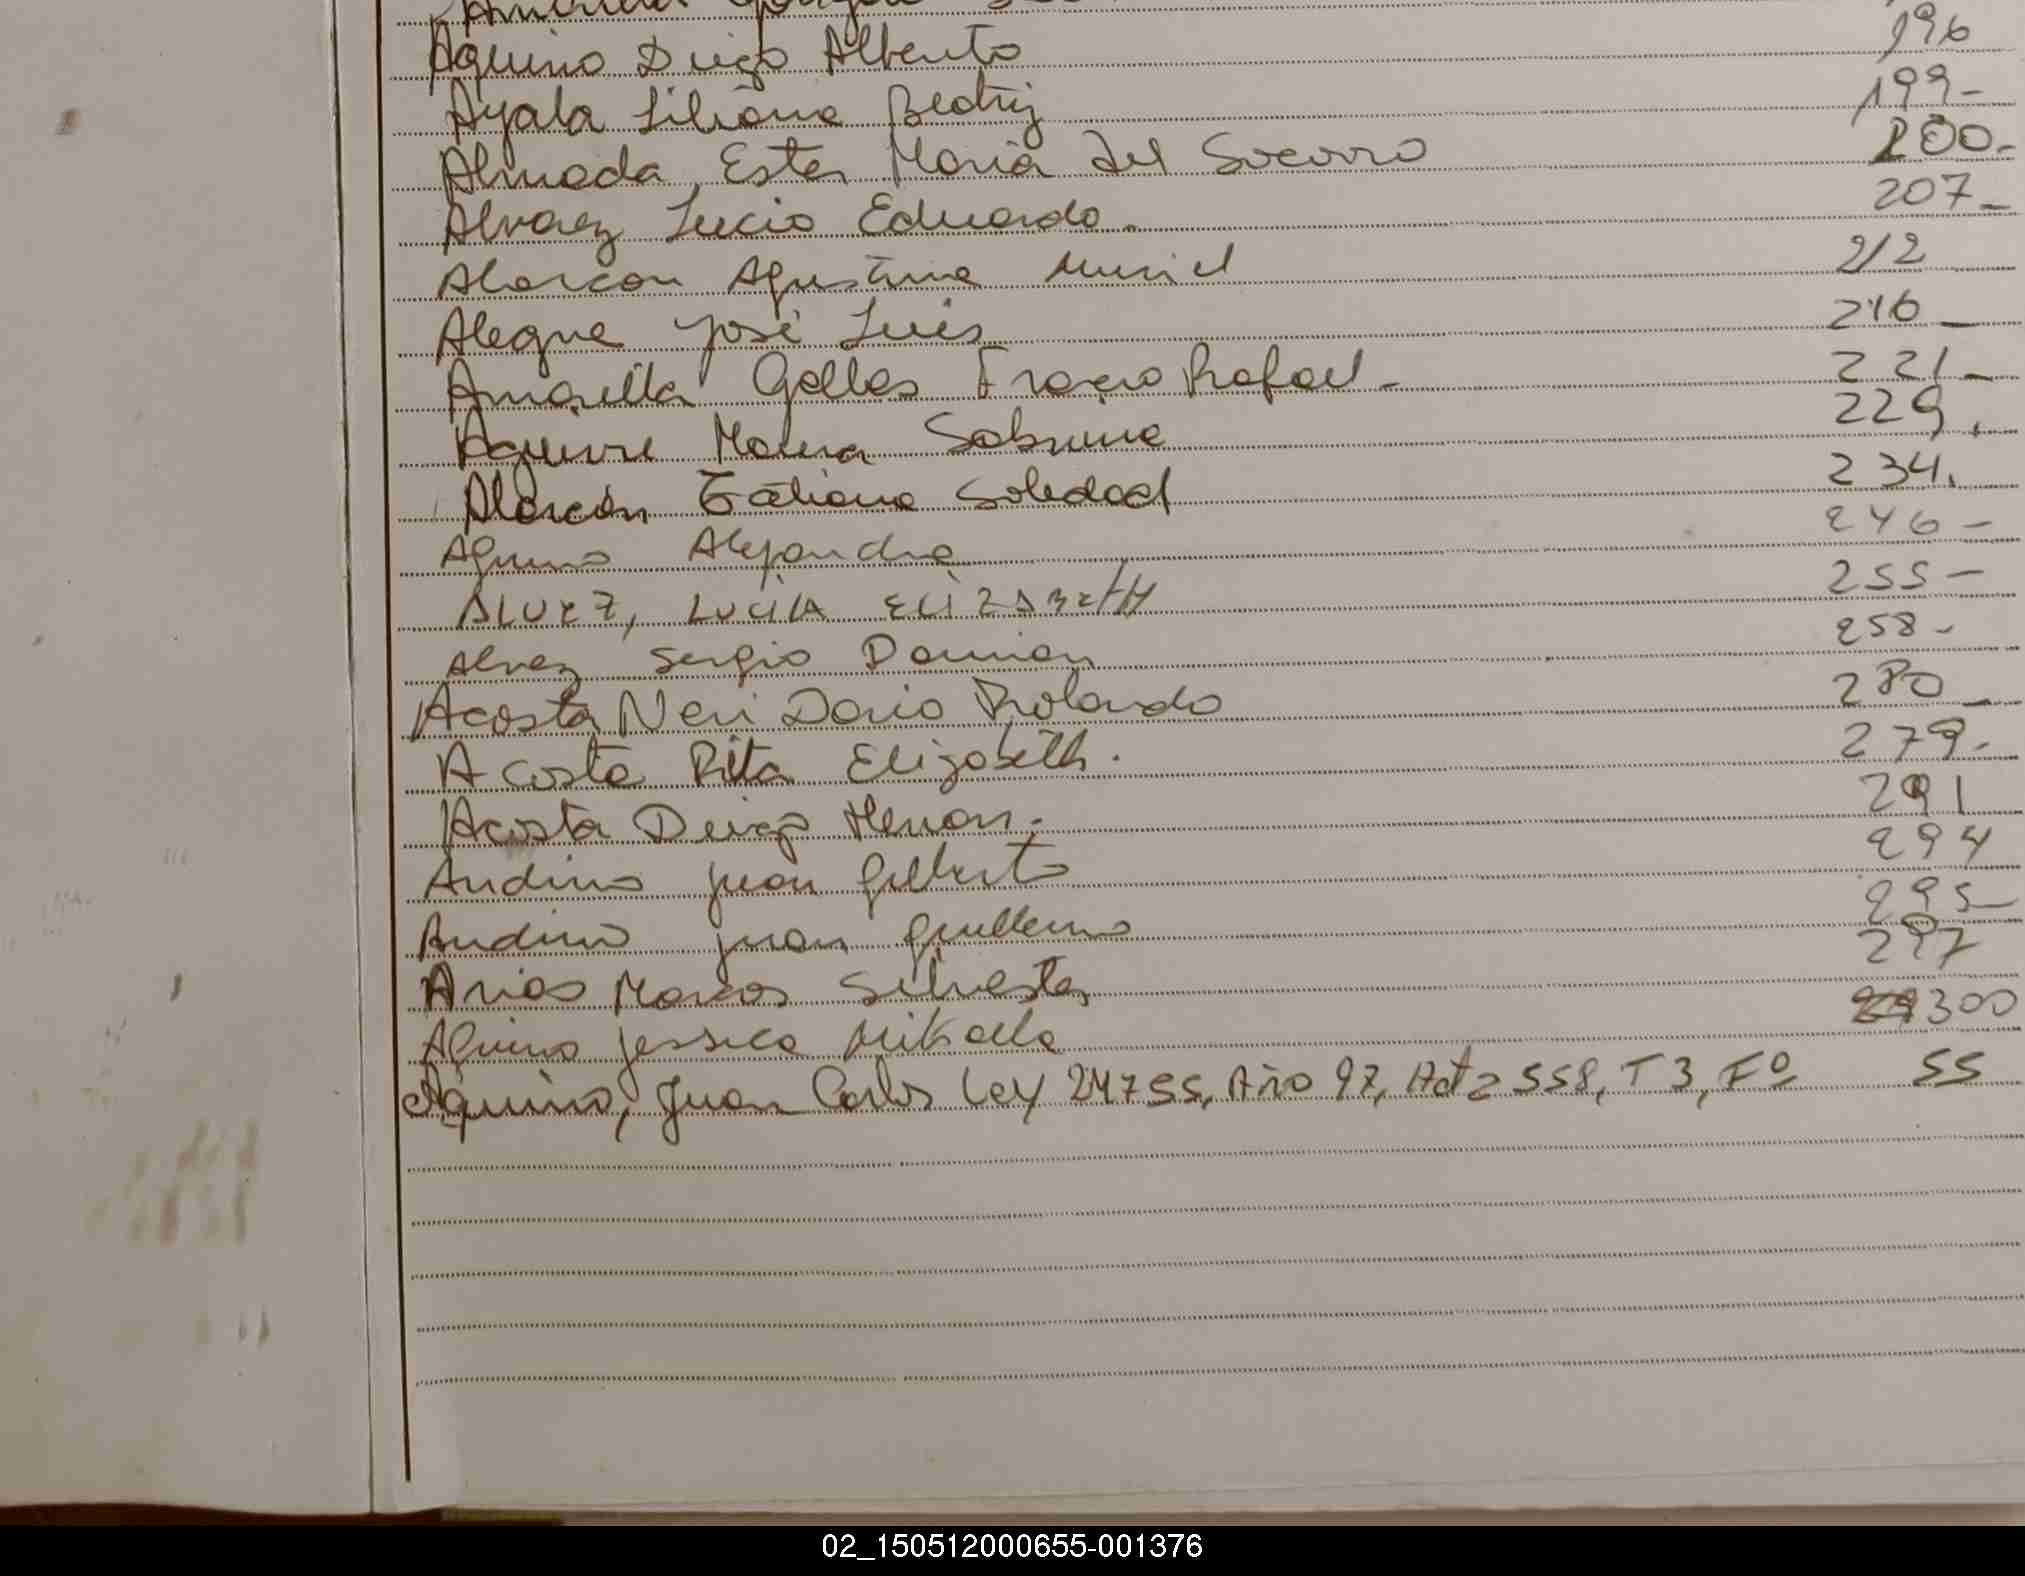 Aquino Diego Alberto 196
Ayala Liliana Beatriz 199-
Almada Ester Maria del Socorro 200-
Alvarez Lucio Eduardo. 207-
Alarcon Agustina Muriel 212
Alegre José Luis 216-
Amarilla Rafael- 221-
Aguirre Maria Sabrina 229.
Alarcón Tatiana Soledad 234.
Aquino Alejandra 246-
ALVEZ, LUCILA ELIZABETH 255-
Alvez Sergio Damian 258-
Acosta Neri Dario Rolando 280-
Acosta Rita Elizabeth. 279-
Acosta Diego Hernan. 291
Andino Juan Gilberto 294
Andino Juan Guillermo 295-
Arias Marcos Silvester 297
Aquino Jessica Mikaela 300
Aquino, Juan Carlos Ley 24755, Año 97, Acta 558, T 3, Fº 55
02_150512000655-001376